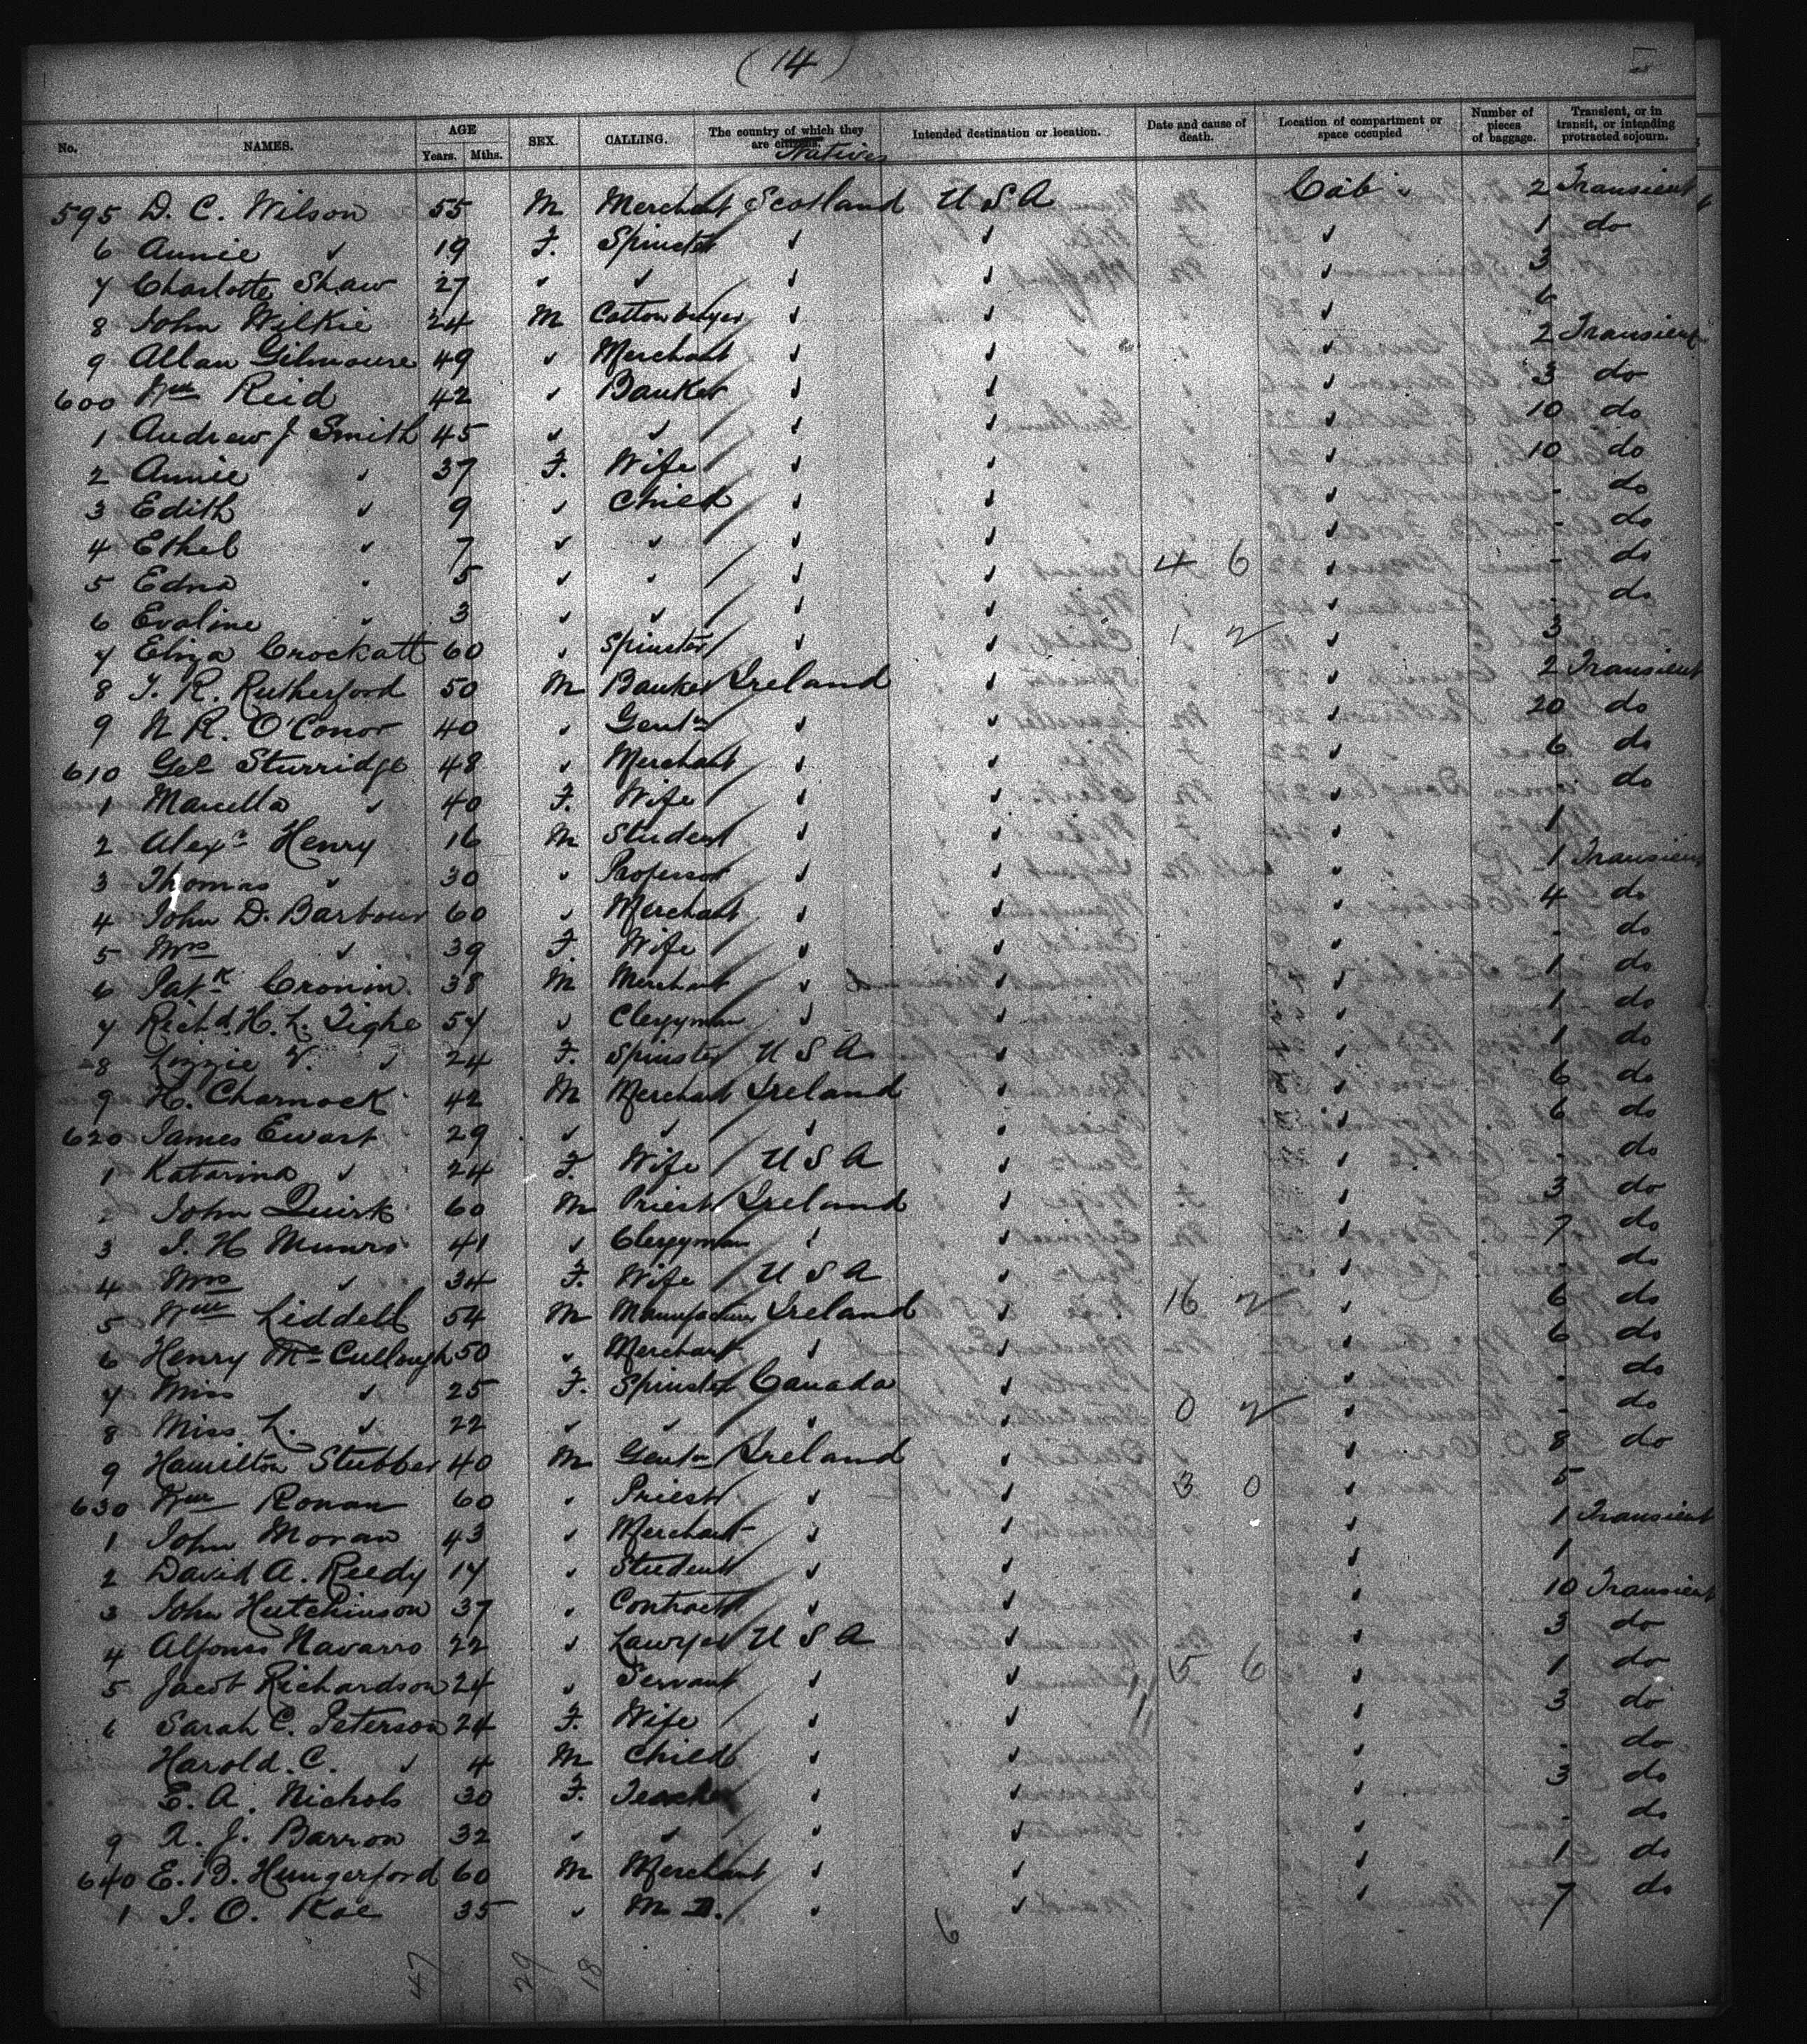 ( 14 )
No. NAMES. AGE Years. Mths. SEX. CALLING. The country of which they are citizens. Natives Intended destination or location. Date and cause of death. Location of compartment or space occupied Number of pieces of baggage. Transient, or in transit, or intending protracted sojourn.
595 D. C. Wilson 55 M Merchant Scotland U S A Cabin 2 Transient
6 Annie ✓ 19 F. Spinster ✓ ✓ ✓ 1 do
7 Charlotte Shaw 27 ✓ ✓ ✓ ✓ ✓ 3
8 John Wilkie 24 M Cotton buyer ✓ ✓ ✓ 6
9 Allan Gilmoure 49 ✓ Merchant ✓ ✓ ✓ 2 Transient
600 Wm Reid 42 ✓ Banker ✓ ✓ ✓ 3 do
1 Andrew J Smith 45 ✓ ✓ ✓ ✓ ✓ 10 do
2 Annie ✓ 37 F. Wife ✓ ✓ ✓ 10 do
3 Edith ✓ 9 ✓ Child ✓ ✓ ✓ - do
4 Ethel ✓ 7 ✓ ✓ ✓ ✓ ✓ - do
5 Edna ✓ 5 ✓ ✓ ✓ ✓ 4 6 ✓ - do
6 Evaline ✓ 3 ✓ ✓ ✓ ✓ ✓ - do
7 Eliza Crockatt 60 ✓ Spinster ✓ ✓ 1 2 ✓ 3
8 J. R. Rutherford 50 M Banker Ireland ✓ ✓ 2 Transient
9 N R. O'Conor 40 ✓ Gentn ✓ ✓ ✓ 20 do
610 Geo Sturridge 48 ✓ Merchant ✓ ✓ ✓ 6 do
1 Marcella ✓ 40 F. Wife ✓ ✓ ✓ do
2 Alexr Henry 16 M Student ✓ ✓ ✓ 1
3 Thomas ✓ 30 ✓ Professor ✓ ✓ ✓ 1 Transient
4 John D. Barbour 60 ✓ Merchant ✓ ✓ ✓ 4 do
5 Mrs ✓ 39 F. Wife ✓ ✓ ✓ - do
6 Patk Cronin 38 M Merchant ✓ ✓ ✓ 1 do
7 Richd. H. L. Tighe 57 ✓ Clergyman ✓ ✓ ✓ 1 do
8 Lizzie V. ✓ 24 F. Spinster U S A ✓ ✓ 1 do
9 H. Charnock 42 M Merchant Ireland ✓ ✓ 6 do
620 James Ewart 29 ✓ ✓ ✓ ✓ ✓ 6 do
1 Katarina ✓ 24 F. Wife U S A ✓ ✓ - do
2 John Quirk 60 M Priest Ireland ✓ ✓ 3 do
3 J. H Munro 41 ✓ Clergyman ✓ ✓ ✓ 7 do
4 Mrs ✓ 34 F. Wife U S A ✓ ✓ do
5 Wm Liddell 54 M Manufacturer Ireland ✓ 16 2 ✓ 6 do
6 Henry McCullough 50 ✓ Merchant ✓ ✓ ✓ 6 do
7 Miss ✓ 25 F. Spinster Canada ✓ ✓ - do
8 Miss L. ✓ 22 ✓ ✓ ✓ ✓ 0 2 ✓ - do
9 Hamilton Stubber 40 M Gentn Ireland ✓ ✓ 8 do
630 Wm Ronan 60 ✓ Priest ✓ ✓ 3 0 ✓ 5
1 John Moran 43 ✓ Merchant ✓ ✓ ✓ 1 Transient
2 David A. Reedy 17 ✓ Student ✓ ✓ ✓ 1
3 John Hutchinson 37 ✓ Contractr ✓ ✓ ✓ 10 Transient
4 Alfonso Navarro 22 ✓ Lawyer U S A ✓ ✓ 3 do
5 Jacob Richardson 24 ✓ Servant ✓ ✓ 5 6 ✓ 1 do
6 Sarah C. Peterson 24 F. Wife ✓ ✓ ✓ 3 do
Harold. C. ✓ 4 M Child ✓ ✓ ✓ - do
E. A. Nichols 30 F. Teacher ✓ ✓ ✓ 3 do
9 A. J. Barron 32 ✓ ✓ ✓ ✓ ✓ - do
640 E. B. Hungerford 60 M Merchant ✓ ✓ ✓ 1 do
1 J. O. Roe 35 ✓ M D. ✓ ✓ ✓ 7 do
47 29 18 6